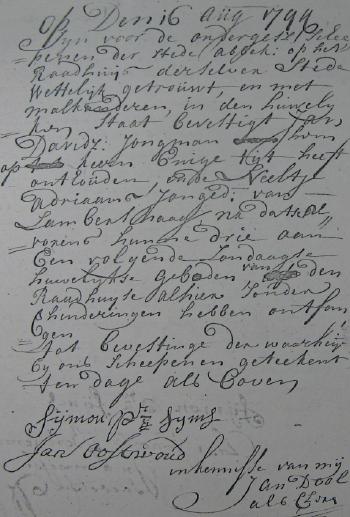 op Den 16 Aug 1744
Zijn voor de ondergesz: Schee
=penen der stede Abbek: op het
Raadhuijs derselver Stede
Wettelijk getrouwt, en met
malkanderen, in den huwely
ken Staat bevestigt Jan
Davidz: Jongman
op hem Enige tijt heeft
onthouden, ende Neeltje
Adriaans Jonged: van
Lambertschaag na dat al
=vorens hunne drie aan
Een volgende Sondaagse
huwelijkse geboden van den
Raadhuyse alhier Sonder
hinderingen hebben ontfan
gen
tot bevestinge der waarheijt
bij ons Scheepenen geteekent
ten dage als Boven
Sijmon Syms
Jan Oostwoud
in kennisse van mij
Jan Dool
als